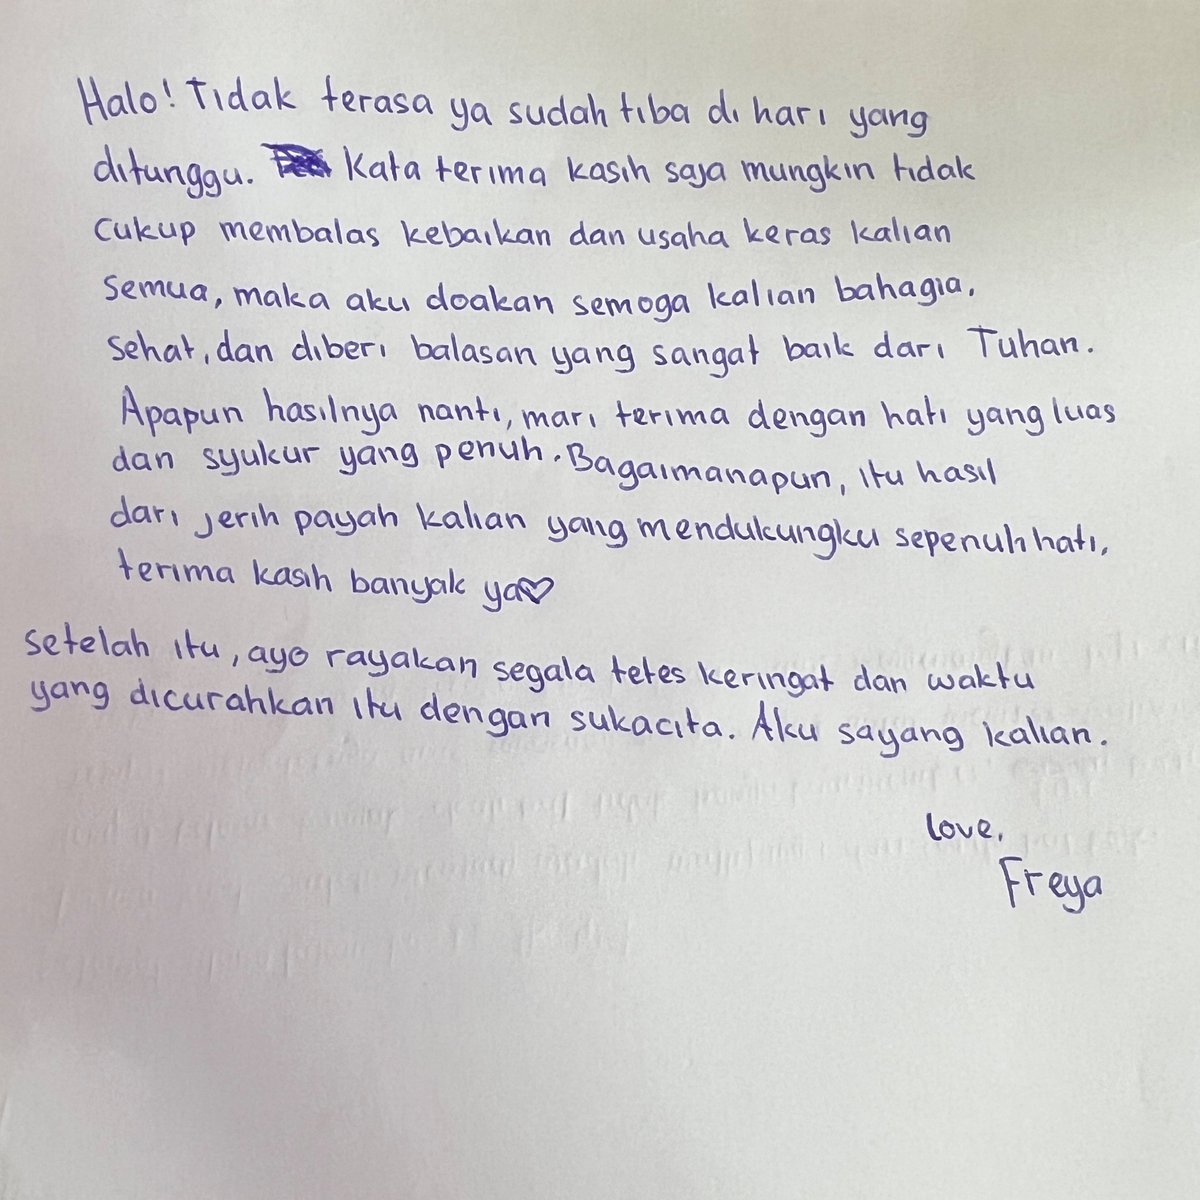 Halo! Tidak terasa ya sudah tiba di hari yang
ditunggu. Kata terima kasih saja mungkin tidak
cukup membalas kebaikan dan usaha keras kalian
semua, maka aku doakan semoga kalian bahagia,
sehat, dan diberi balasan yang sangat baik dari Tuhan.
Apapun hasilnya nanti, mari terima dengan hati yang luas
dan syukur yang penuh. Bagaimanapun, itu hasil
dari jerih payah kalian yang mendukungku sepenuh hati,
terima kasih banyak ya♡
setelah itu, ayo rayakan segala tetes keringat dan waktu
yang dicurahkan itu dengan sukacita. Aku sayang kalian.
love,
Freya